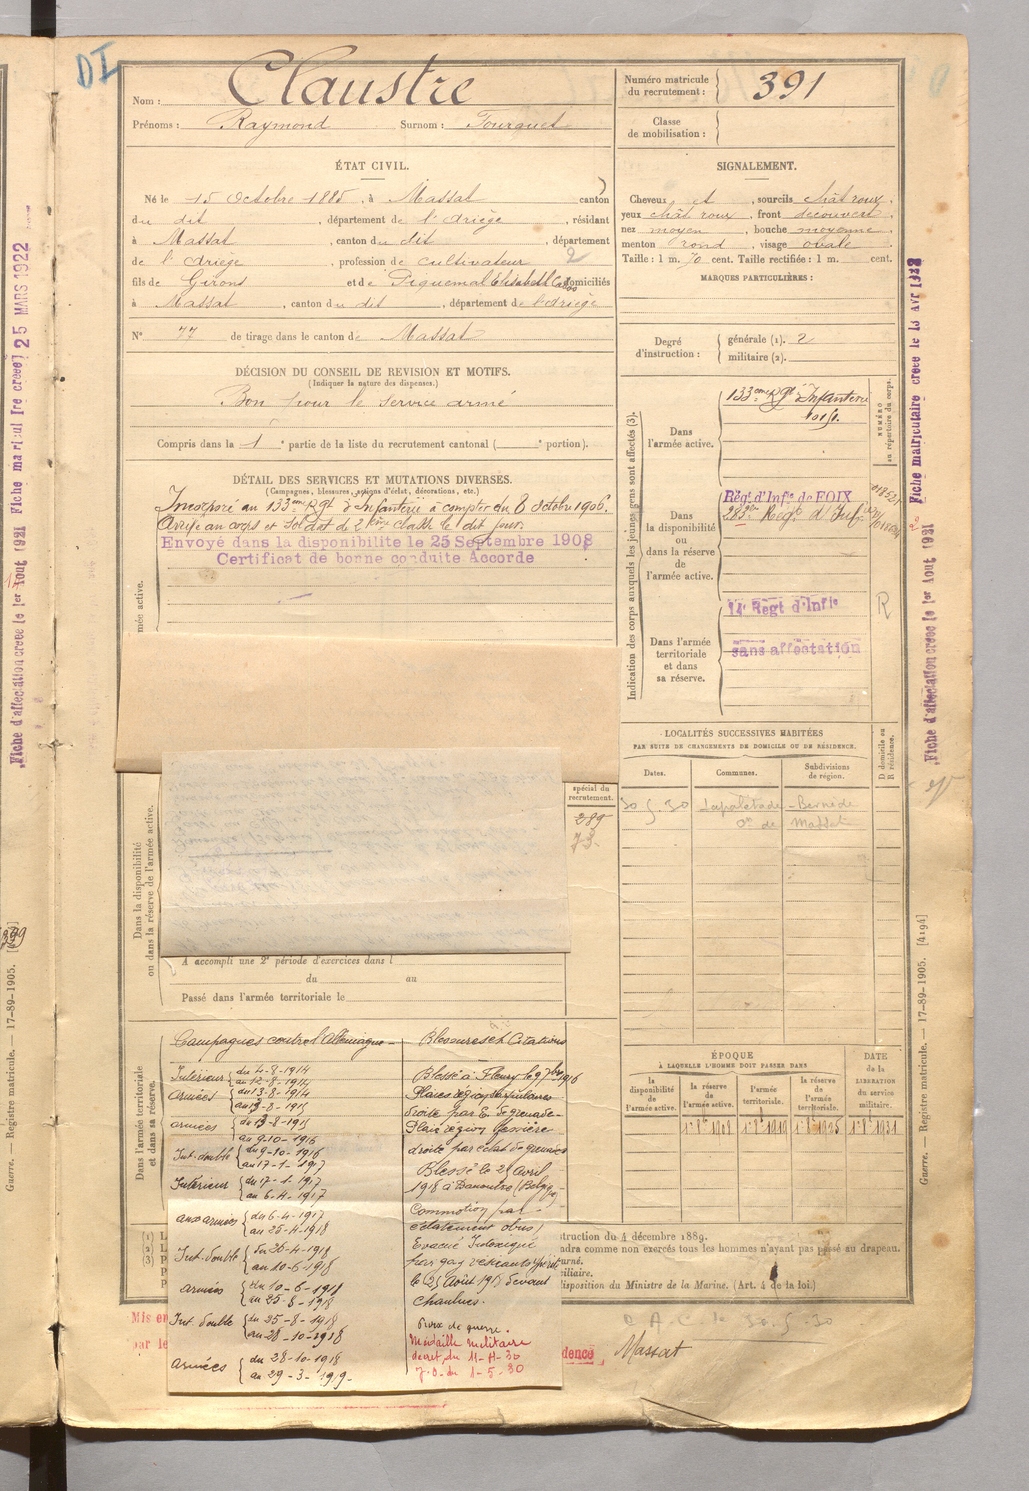 DI
Nom : Claustre
Prénoms : Raymond Surnom :
Numéro matricule du recrutement : 391
Classe de mobilisation :
ÉTAT CIVIL.
Né le 15 Octobre 1885, à Massat canton
du dit, département de l'Ariège, résidant
à Massat, canton du dit, département
de l'Ariège, profession de cultivateur
2
fils de Girons et de Piquemal Elisabeth domiciliés
à Massat, canton du dit, département de l'Ariège
N° 77 de tirage dans le canton de Massat
DÉCISION DU CONSEIL DE REVISION ET MOTIFS.
(Indiquer la nature des dispenses.)
Bon pour le service armé
Compris dans la 1 e partie de la liste du recrutement cantonal ( e portion).
DÉTAIL DES SERVICES ET MUTATIONS DIVERSES.
(Campagnes, blessures, actions d'éclat, décorations, etc.)
Incorporé au 133eme Rgt d'Infanterie à compter du 8 octobre 1906.
Arrivé au corps et Soldat de 2eme classe le dit jour.
Envoyé dans la disponibilite le 25 Septembre 1908
Certificat de bonne conduite Accorde
SIGNALEMENT.
Cheveux et, sourcils chât roux,
yeux chât roux, front découvert
nez moyen, bouche moyenne,
menton rond, visage ovale
Taille : 1 m. 70 cent. Taille rectifiée : 1 m. cent.
MARQUES PARTICULIÈRES :
Degré d'instruction : générale (1). 2
militaire (2).
Indication des corps auxquels les jeunes gens sont affectés (3).
NUMÉRO au répertoire du corps.
Dans l'armée active.
133eme Rgt d'Infanterie
Dans la disponibilité ou dans la réserve de l'armée active.
Régt d'Infie de FOIX
283eme Régt d'Inf
Dans l'armée territoriale et dans sa réserve.
14e Regt d'Infie
sans affectation
R
LOCALITÉS SUCCESSIVES HABITÉES
PAR SUITE DE CHANGEMENTS DE DOMICILE OU DE RÉSIDENCE.
Dates. Communes. Subdivisions de région. D domicile ou R résidence.
30 5.30 Lapalétade - Bernède
Cne de Massat
spécial du recrutement.
289
Dans la disponibilité ou dans la réserve de l'armée active.
A accompli une 2e période d'exercices dans l
du au
Passé dans l'armée territoriale le
Dans l'armée territoriale et dans sa réserve.
Campagnes contre l'Allemagne
Intérieur du 4-8-1914
au 12-8-1914
armées du 13-8-1914
au 12-8-1915
armées du 13-8-1915
au 9-10-1916
Int. double du 9-10-1916
au 17-1-1917
Intérieur du 17-1-1917
au 6-4-1917
aux armées du 6-4-1917
au 25-4-1918
Int. double du 26-4-1918
au 10-6-1918
armées du 10-6-1918
au 25-8-1918
Int. double du 25-8-1918
au 28-10-1918
armées du 28-10-1918
au 29-3-1919
Blessures et Citations
Blessé à Fleury le 9 7bre 1916
droite par E. de grenade
Plaie région fessière
droite par éclat de grenade
Blessé le 25 avril
1918 à (Belgique)
Commotion par
éclatement obus
Evacué Intoxiqué
par gaz
le 25 Août 1918 devant
Chaulnes.
Croix de guerre.
Médaille militaire
décret du 11-4-30
J.O. du 1-5-30
ÉPOQUE
À LAQUELLE L'HOMME DOIT PASSER DANS
la disponibilité de l'armée active. la réserve de l'armée active. l'armée territoriale. la réserve de l'armée territoriale.
DATE de la LIBÉRATION du service militaire.
1er 8bre 1908 1er 8bre 1919 1er 8bre 1925 1er 8bre 1931
struction du 4 décembre 1889.
ndra comme non exercés tous les hommes n'ayant pas passé au drapeau.
disposition du Ministre de la Marine. (Art. 4 de la loi.)
Mis en
par le
dence
Massat
Fiche matriculaire creee le 13 AVR 1922
Fiche d'affectation creee le 1er Aout 1921
Guerre. — Registre matricule. — 17-89-1905. [4194]
25 MARS 1922
Fiche d'affectation creee le 1er Aout 1921
Guerre. — Registre matricule. — 17-89-1905.